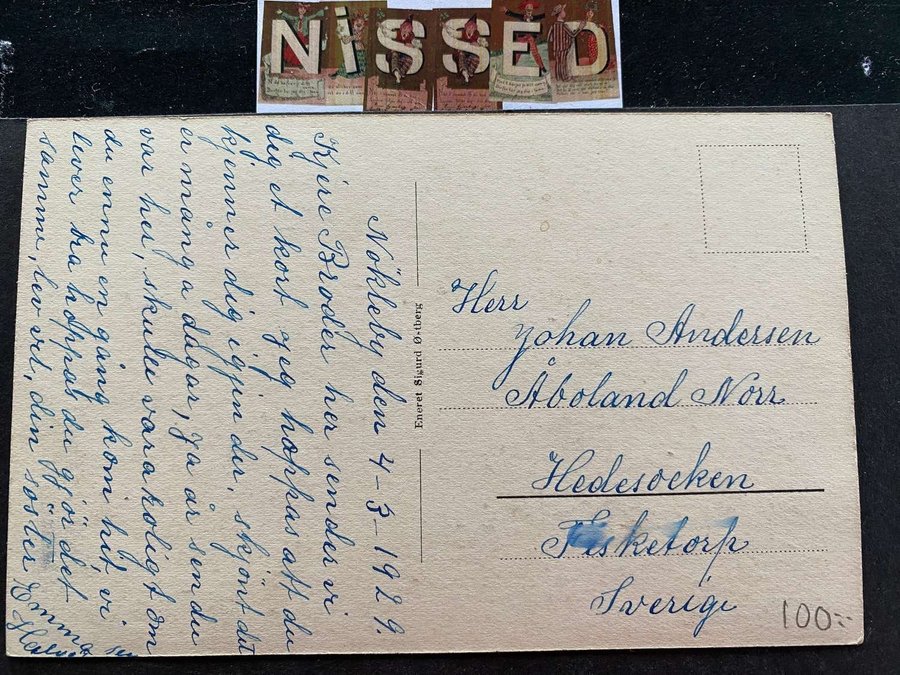 NiSSED
Nökleby den 4-3-1929.
Kjere Broder her sender vi
dig et kort jeg hoppas at du
kjenner dig igjen der, skjönt det
er mång a dagar, Ja år sen du
var her, skulle vara koligt om
du ennu en gång kom hit, vi
lever bra hoppas du gjör det
samme, lev vel, din söster Emma
Eneret Sigurd Østberg
Herr
Johan Andersen
Åboland Norr
Hedesocken
Fisketorp
Sverige
100:-